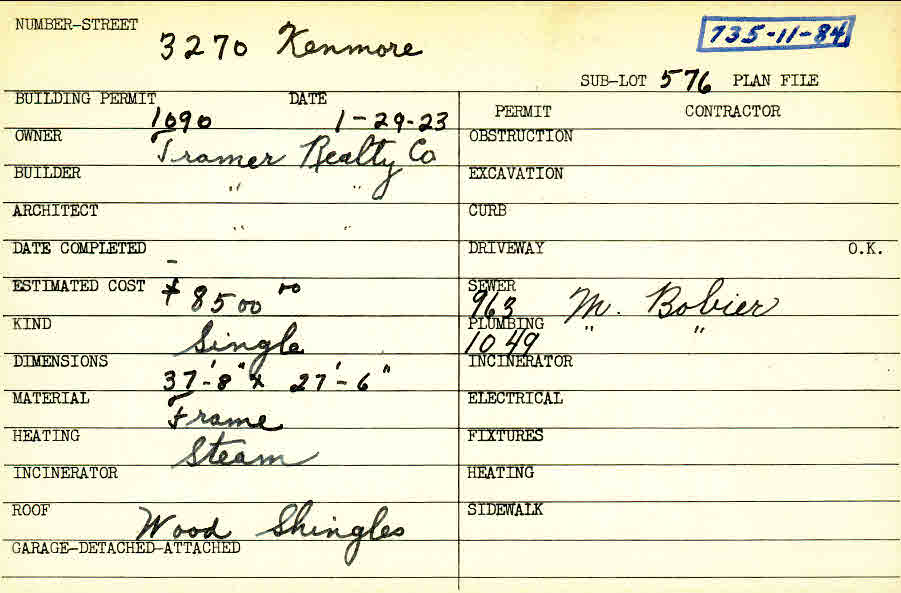 NUMBER-STREET 3270 Kenmore
735-11-84
SUB-LOT 576 PLAN FILE
BUILDING PERMIT 1090 DATE 1-29-23
PERMIT CONTRACTOR
OWNER Tramer Realty Co
OBSTRUCTION
BUILDER " "
EXCAVATION
ARCHITECT " "
CURB
DATE COMPLETED -
DRIVEWAY O.K.
ESTIMATED COST $8500 00
SEWER 963 M. Bobier
KIND Single
PLUMBING 1049 " "
DIMENSIONS 37'-8" x 27'-6"
INCINERATOR
MATERIAL Frame
ELECTRICAL
HEATING Steam
FIXTURES
INCINERATOR
HEATING
ROOF Wood Shingles
SIDEWALK
GARAGE-DETACHED-ATTACHED